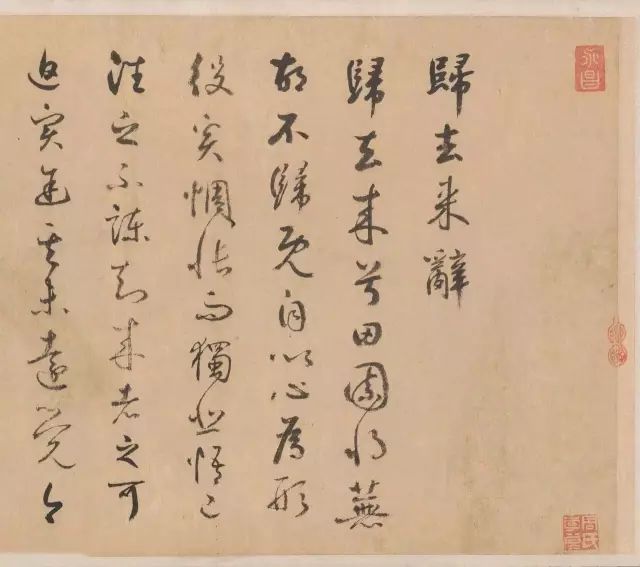 歸去来辭
歸去来兮田園将蕪
胡不歸既自以心為形
役奚惆悵而獨悲悟已
往之不諫知来者之可
追実其未遠覺今
永昌